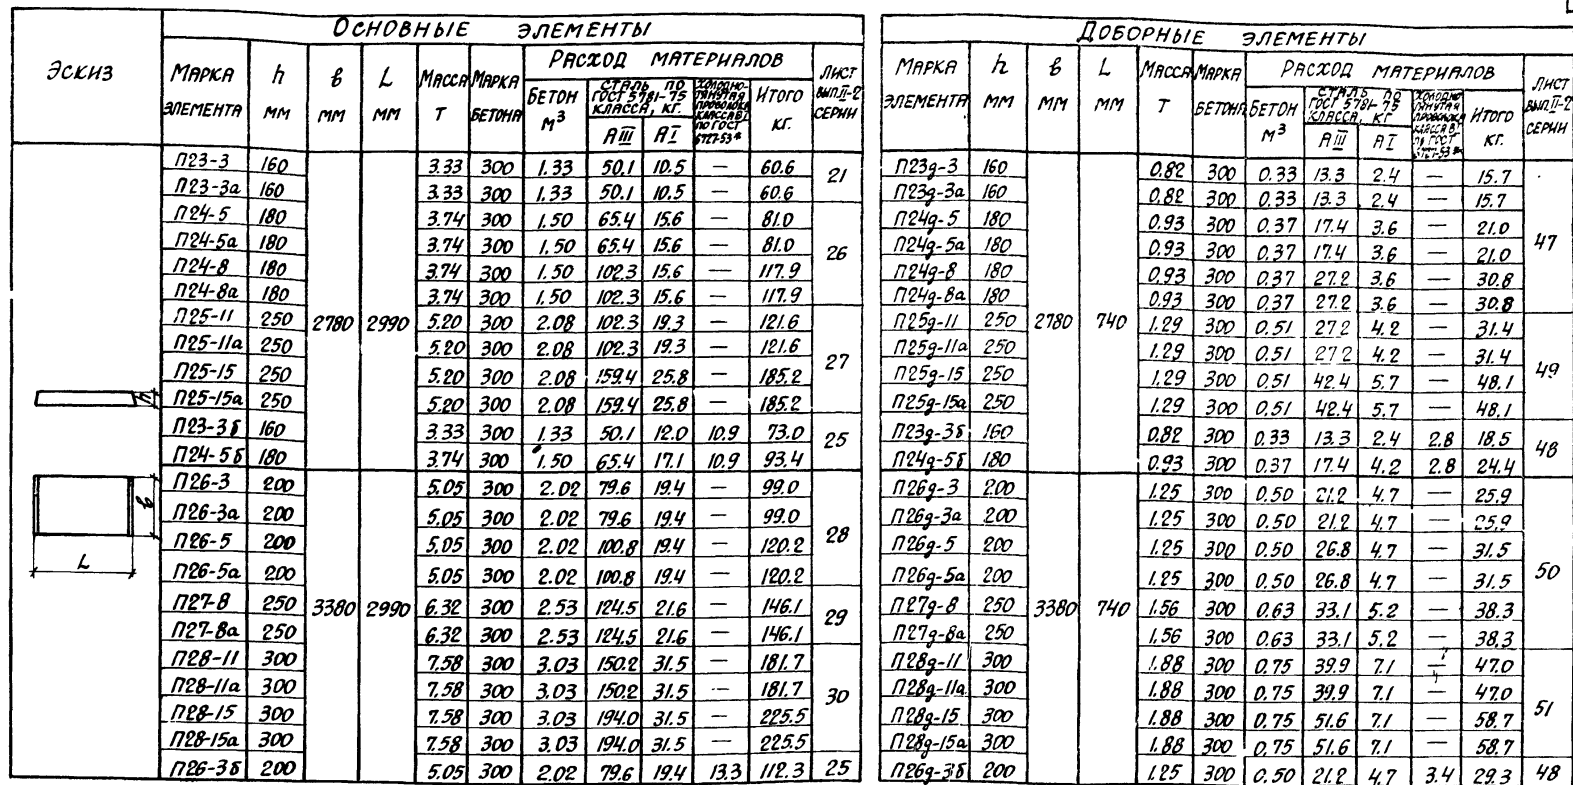 Эскиз
Основные элементы
Марка элемента h мм в мм L мм Масса т Марка бетона Расход материалов Лист вып.II-2 серии
Бетон м³ Сталь по ГОСТ 5781-75 класса, кг. AIII AI Холодно-тянутая проволока класса ВI по ГОСТ 6727-53* Итого кг.
П23-3 160 3.33 300 1.33 50.1 10.5 — 60.6 21
П23-3а 160 3.33 300 1.33 50.1 10.5 — 60.6
П24-5 180 3.74 300 1.50 65.4 15.6 — 81.0 26
П24-5а 180 3.74 300 1.50 65.4 15.6 — 81.0
П24-8 180 3.74 300 1.50 102.3 15.6 — 117.9
П24-8а 180 3.74 300 1.50 102.3 15.6 — 117.9
П25-11 250 2780 2990 5.20 300 2.08 102.3 19.3 — 121.6 27
П25-11а 250 5.20 300 2.08 102.3 19.3 — 121.6
П25-15 250 5.20 300 2.08 159.4 25.8 — 185.2
П25-15а 250 5.20 300 2.08 159.4 25.8 — 185.2
П23-3б 160 3.33 300 1.33 50.1 12.0 10.9 73.0 25
П24-5б 180 3.74 300 1.50 65.4 17.1 10.9 93.4
П26-3 200 5.05 300 2.02 79.6 19.4 — 99.0 28
П26-3а 200 5.05 300 2.02 79.6 19.4 — 99.0
П26-5 200 5.05 300 2.02 100.8 19.4 — 120.2
П26-5а 200 5.05 300 2.02 100.8 19.4 — 120.2
П27-8 250 3380 2990 6.32 300 2.53 124.5 21.6 — 146.1 29
П27-8а 250 6.32 300 2.53 124.5 21.6 — 146.1
П28-11 300 7.58 300 3.03 150.2 31.5 — 181.7 30
П28-11а 300 7.58 300 3.03 150.2 31.5 — 181.7
П28-15 300 7.58 300 3.03 194.0 31.5 — 225.5
П28-15а 300 7.58 300 3.03 194.0 31.5 — 225.5
П26-3б 200 5.05 300 2.02 79.6 19.4 13.3 112.3 25
h
в
L
Доборные элементы
Марка элемента h мм в мм L мм Масса т Марка бетона Расход материалов Лист вып.II-2 серии
Бетон м³ Сталь по ГОСТ 5781-75 класса, кг AIII AI Холодно-тянутая проволока класса ВI по ГОСТ 6727-53* Итого кг.
П23g-3 160 0.82 300 0.33 13.3 2.4 — 15.7 47
П23g-3а 160 0.82 300 0.33 13.3 2.4 — 15.7
П24g-5 180 0.93 300 0.37 17.4 3.6 — 21.0
П24g-5а 180 0.93 300 0.37 17.4 3.6 — 21.0
П24g-8 180 0.93 300 0.37 27.2 3.6 — 30.8
П24g-8а 180 0.93 300 0.37 27.2 3.6 — 30.8
П25g-11 250 2780 740 1.29 300 0.51 27.2 4.2 — 31.4 49
П25g-11а 250 1.29 300 0.51 27.2 4.2 — 31.4
П25g-15 250 1.29 300 0.51 42.4 5.7 — 48.1
П25g-15а 250 1.29 300 0.51 42.4 5.7 — 48.1
П23g-3б 160 0.82 300 0.33 13.3 2.4 2.8 18.5 48
П24g-5б 180 0.93 300 0.37 17.4 4.2 2.8 24.4
П26g-3 200 1.25 300 0.50 21.2 4.7 — 25.9 50
П26g-3а 200 1.25 300 0.50 21.2 4.7 — 25.9
П26g-5 200 1.25 300 0.50 26.8 4.7 — 31.5
П26g-5а 200 1.25 300 0.50 26.8 4.7 — 31.5
П27g-8 250 3380 740 1.56 300 0.63 33.1 5.2 — 38.3
П27g-8а 250 1.56 300 0.63 33.1 5.2 — 38.3
П28g-11 300 1.88 300 0.75 39.9 7.1 — 47.0 51
П28g-11а 300 1.88 300 0.75 39.9 7.1 — 47.0
П28g-15 300 1.88 300 0.75 51.6 7.1 — 58.7
П28g-15а 300 1.88 300 0.75 51.6 7.1 — 58.7
П26g-3б 200 1.25 300 0.50 21.2 4.7 3.4 29.3 48